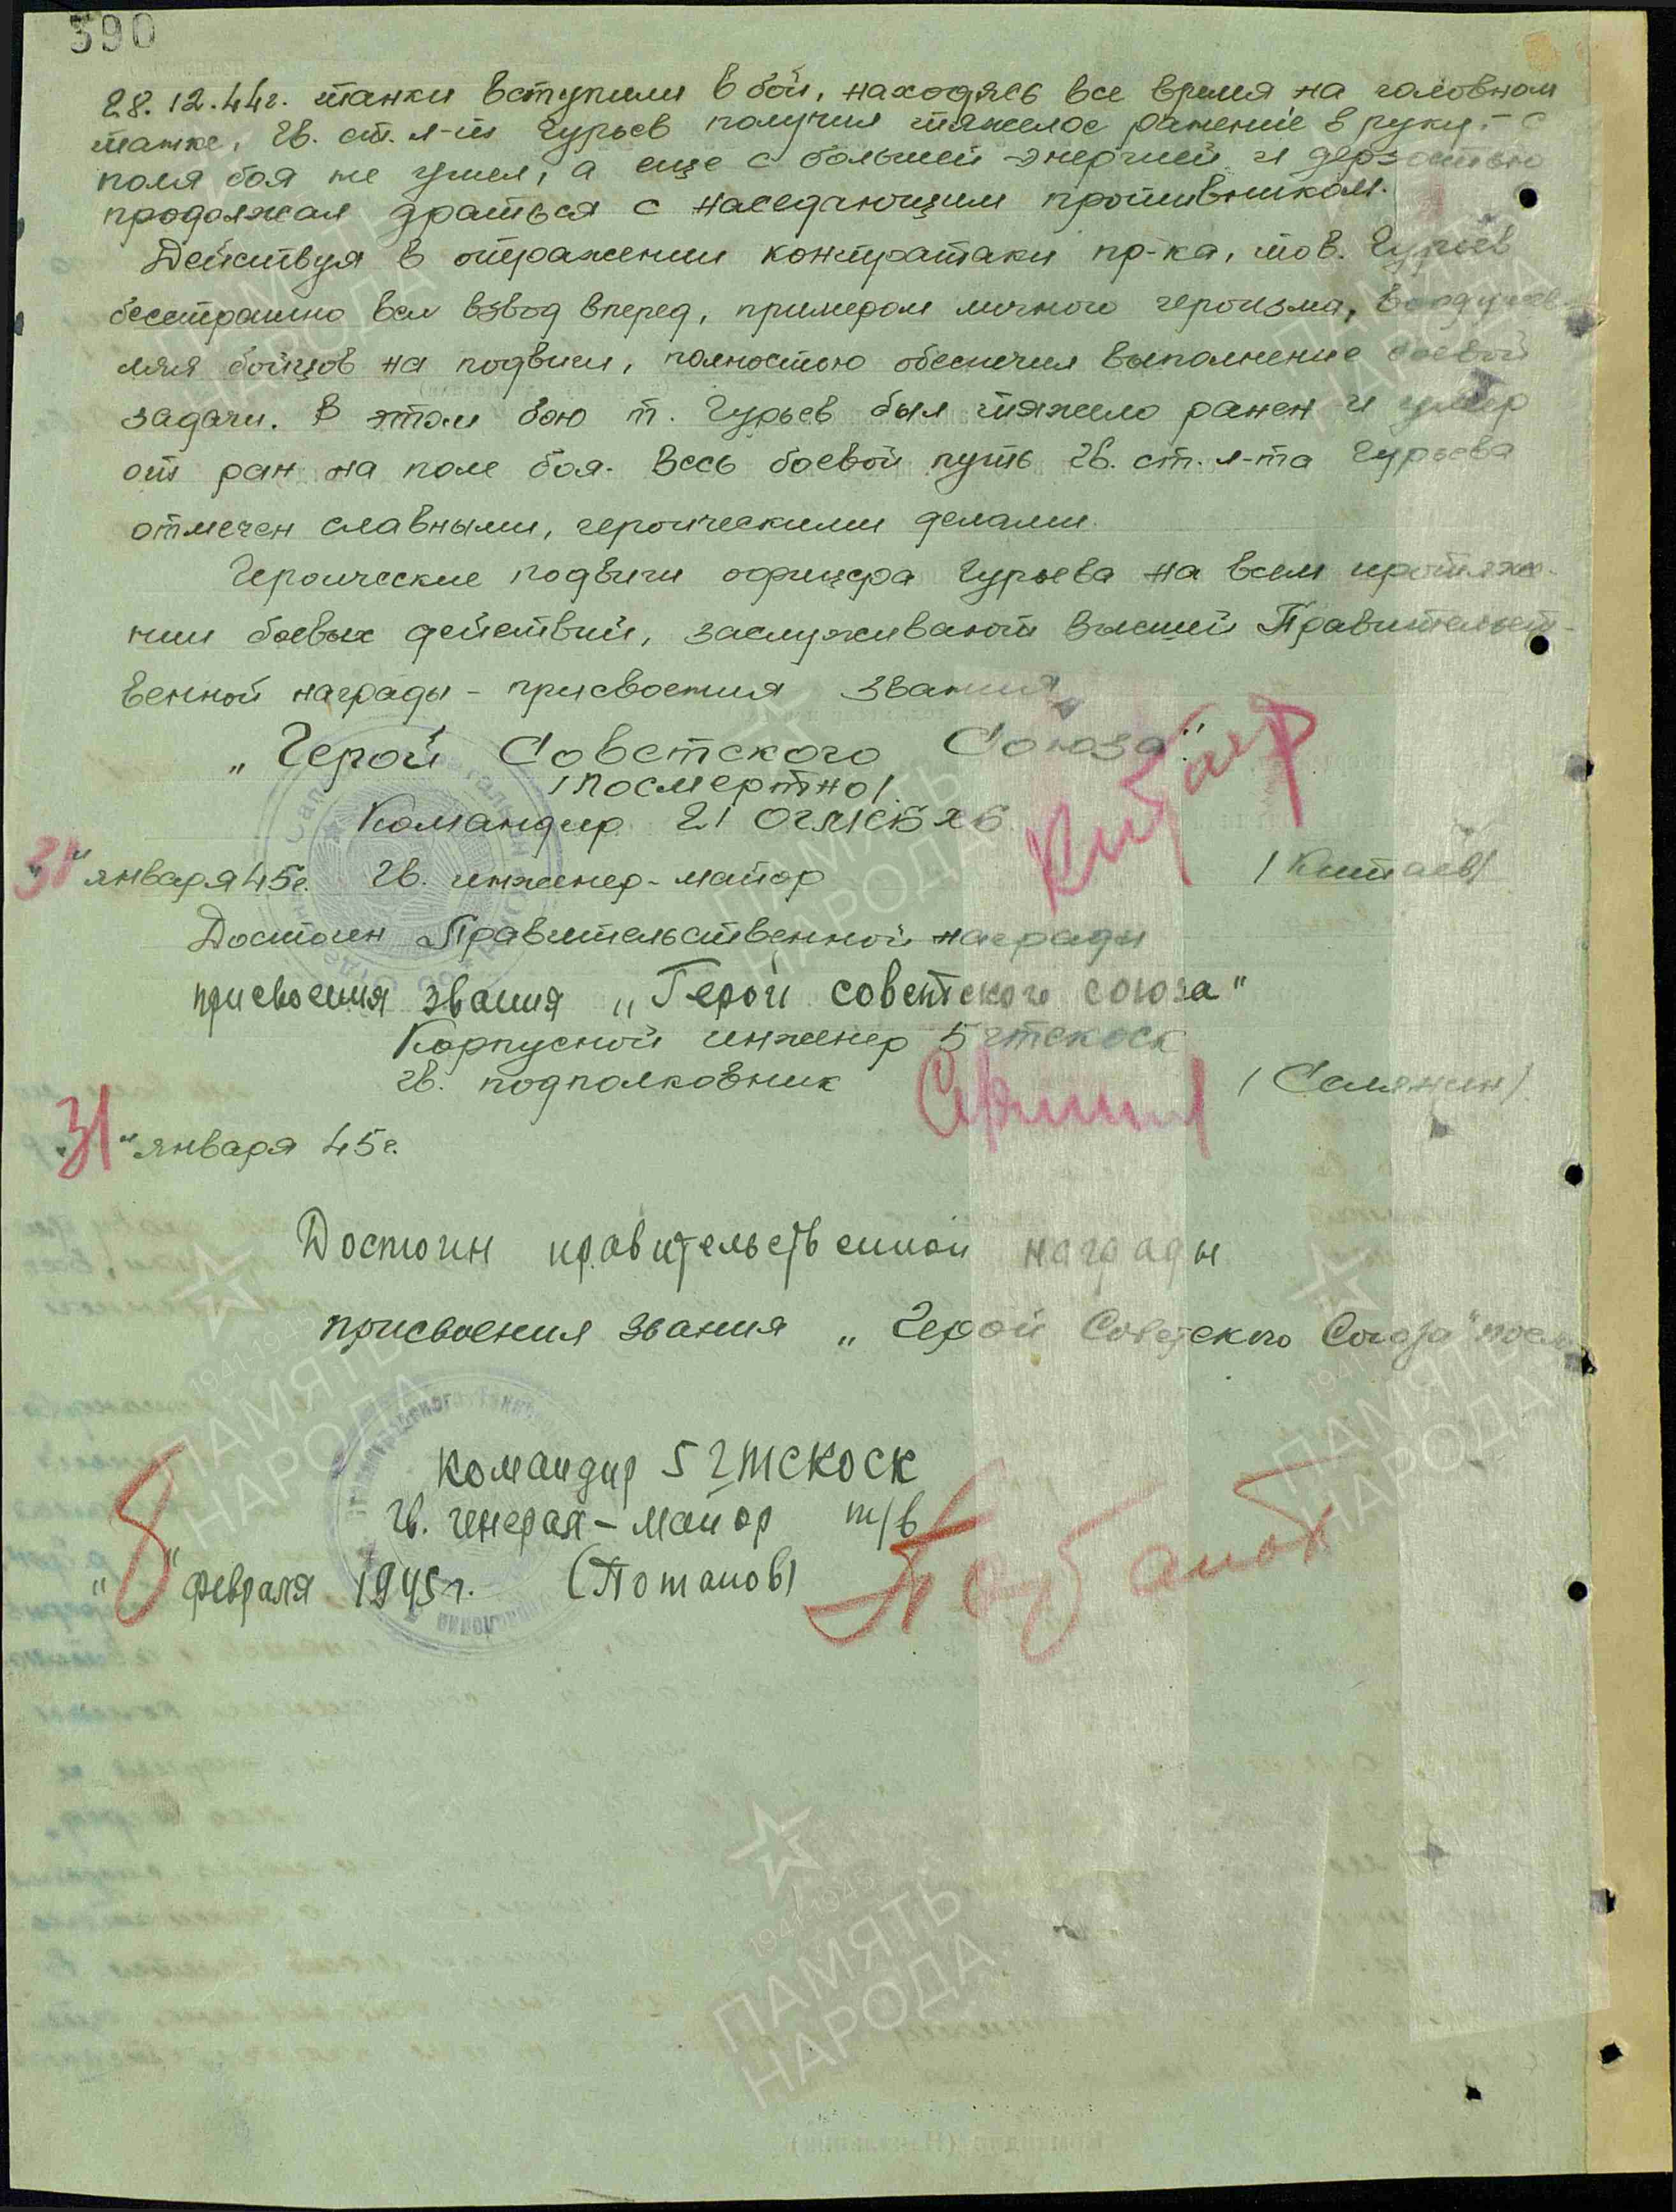 390
28.12.44г. танки вступили в бой, находясь все время на головном
танке, Гв. ст. л-т Гурьев получил тяжелое ранение в руку, с
поля боя не ушел, а еще с большей энергией и дерзостью
продолжал драться с наседающим противником.
Действуя в отражении контратаки пр-ка, тов. Гурьев
бесстрашно вел взвод вперед, примером личного героизма, воодушев-
ляя бойцов на подвиги, полностью обеспечил выполнение боевой
задачи. В этом бою т. Гурьев был тяжело ранен и умер
от ран на поле боя. Весь боевой путь Гв. ст. л-та Гурьева
отмечен славными, героическими делами.
Героические подвиги офицера Гурьева на всем протяже-
нии боевых действий, заслуживают высшей Правительст-
венной награды - присвоения звания
„Герой Советского Союза"
/посмертно/.
Командир 21
"31" января 45г. Гв. инженер-майор /Китаев/
Достоин Правительственной награды
присвоения звания „Герой советского союза"
Корпусной инженер 5 гтскоск
Гв. подполковник /Салянин/
"31" января 45г.
Достоин правительственной награды
присвоения звания „Герой Советского Союза" посм
Командир 5 гтскоск
Гв. генерал-майор т/в
"8" февраля 1945г. (Потапов)
ПАМЯТЬ
НАРОДА
1941 1945